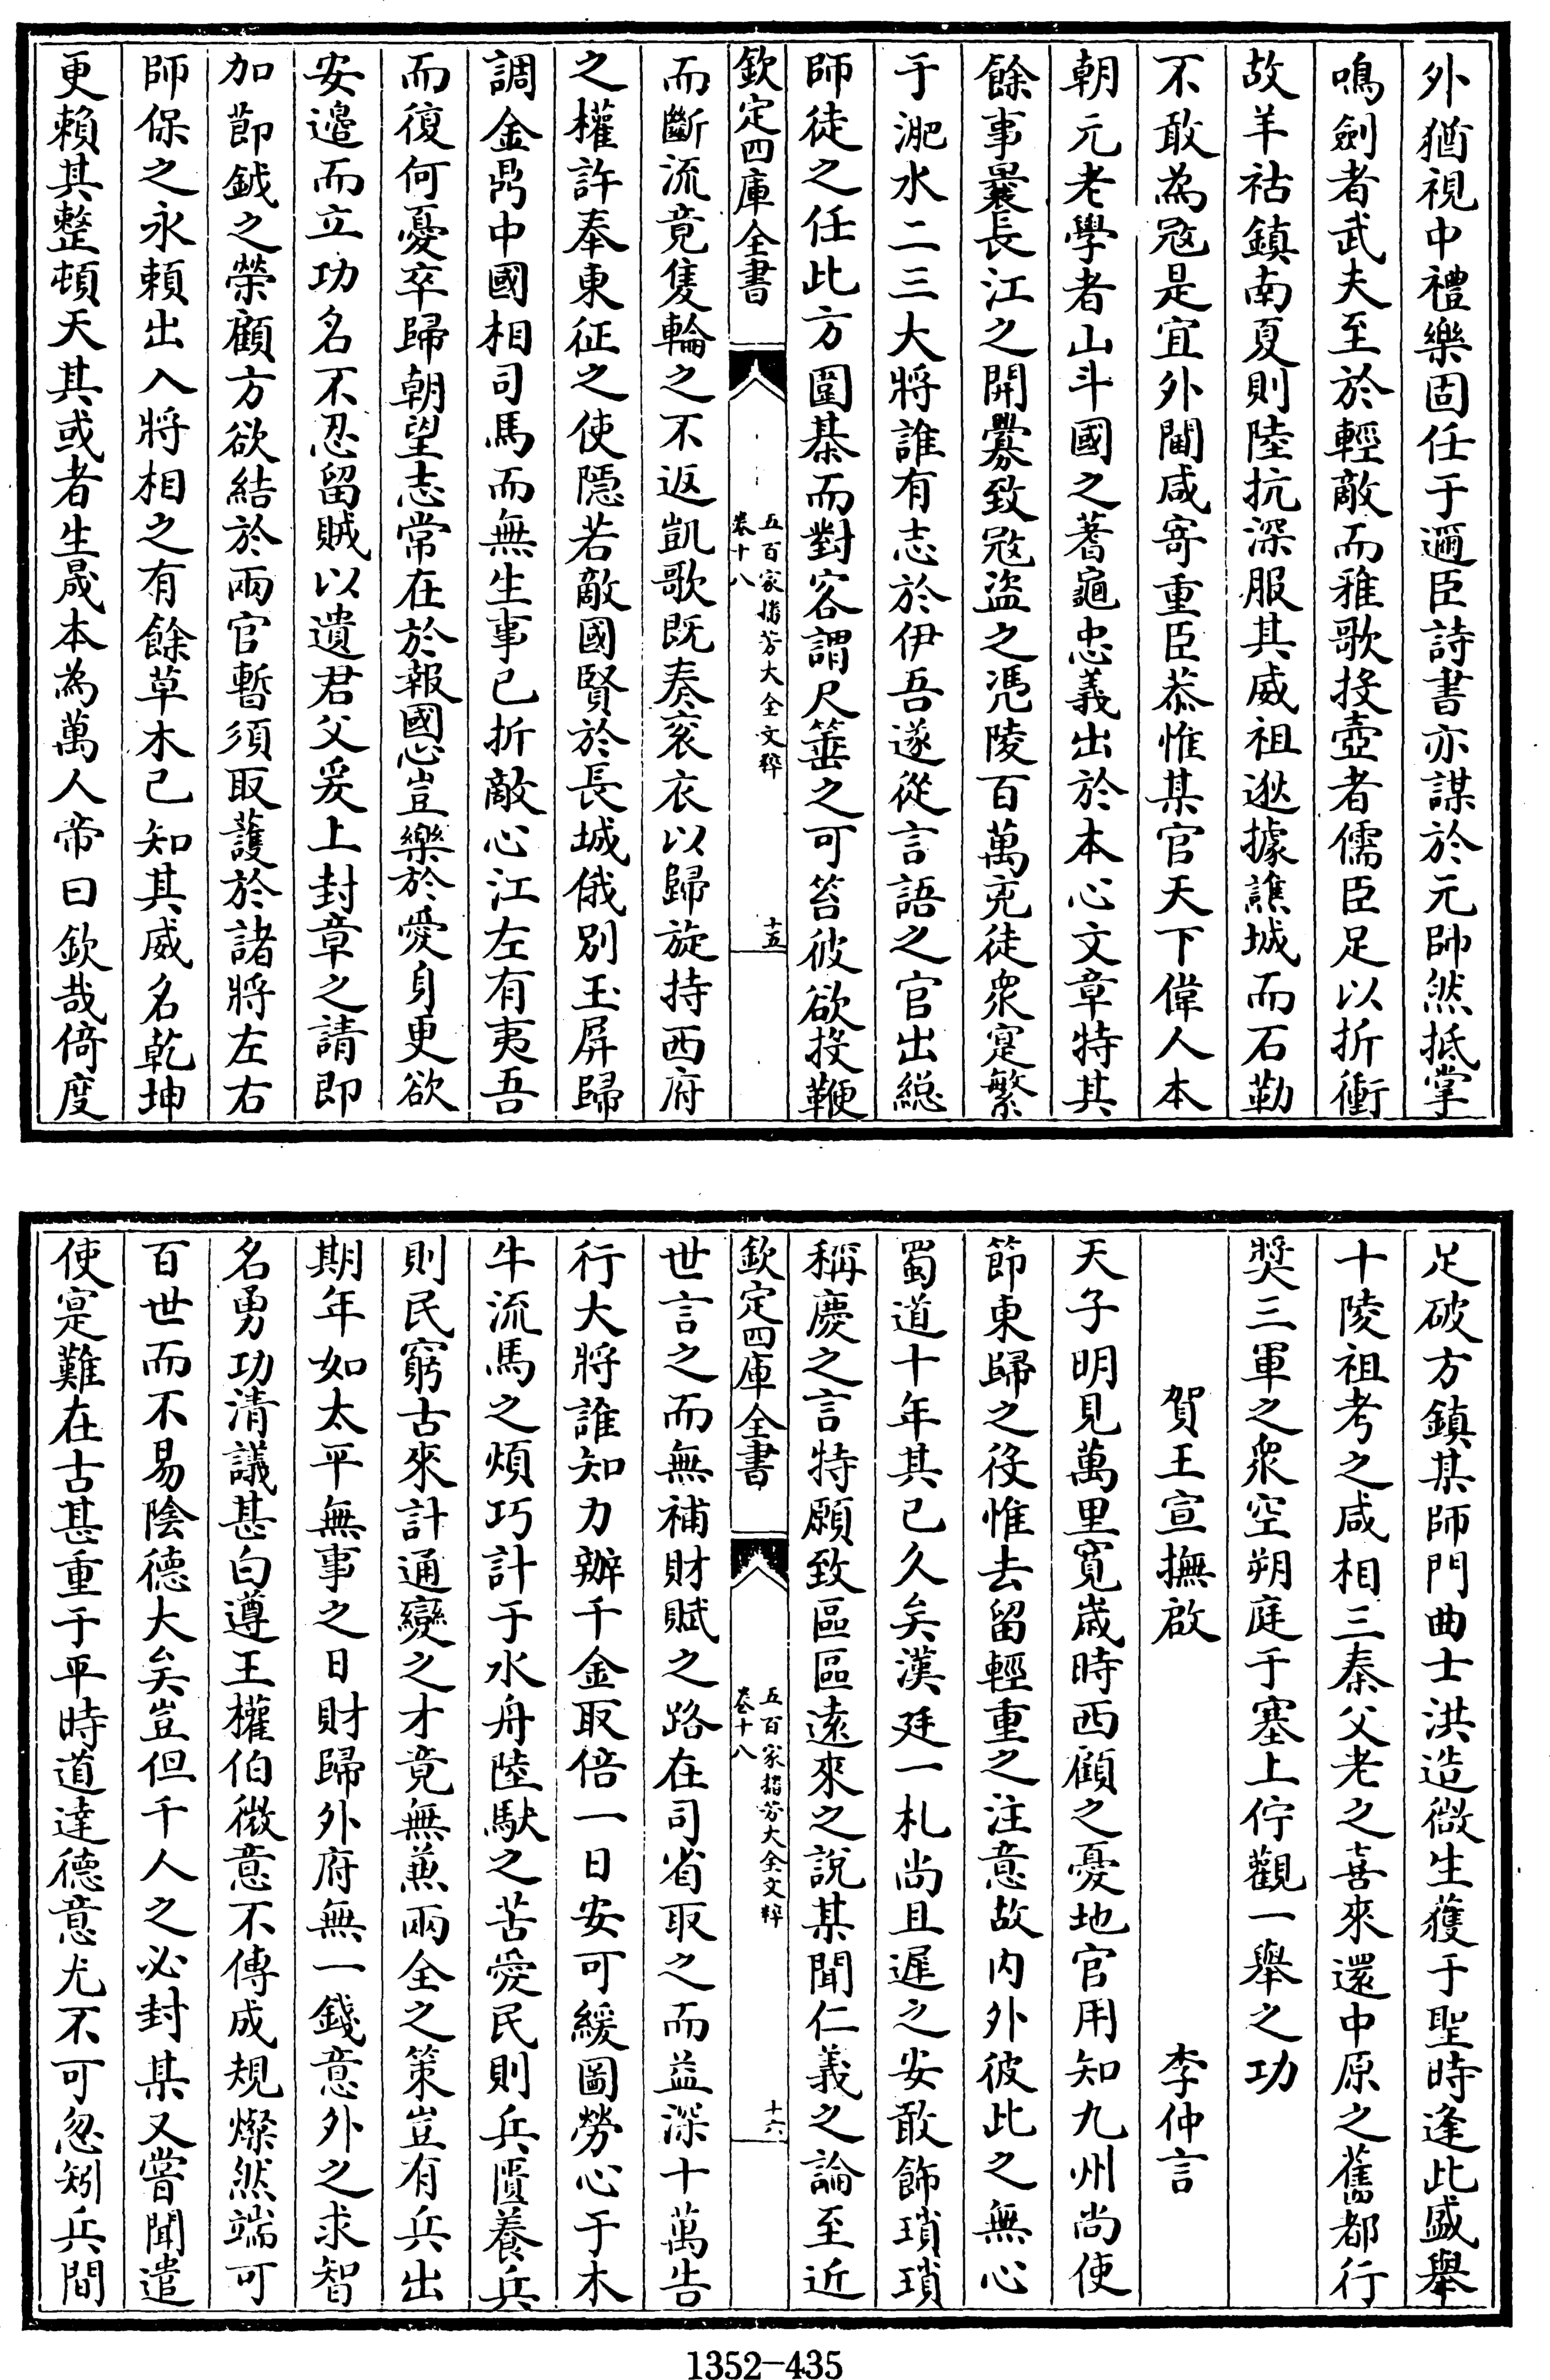 外猶視中禮樂固任于邇臣詩書亦謀於元帥然抵掌
鳴劍者武夫至於輕敵而雅歌投壺者儒臣足以折衝
故羊祜鎮南夏則陸抗深服其威祖逖據譙城而石勒
不敢為寇是宜外閫咸寄重臣恭惟某官天下偉人本
朝元老學者山斗國之蓍龜忠義出於本心文章特其
餘事曩長江之開釁致寇盜之凴陵百萬兇徒衆寔繁
于淝水二三大將誰有志於伊吾遂從言語之官出總
師徒之任此方圍棊而對客謂尺箠之可笞彼欲投鞭
欽定四庫全書
五百家播芳大全文粹
卷十八
十五
而斷流竟隻輪之不返凱歌既奏衮衣以歸旋持西府
之權許奉東征之使隱若敵國賢於長城俄別玉屏歸
調金鼎中國相司馬而無生事已折敵心江左有夷吾
而復何憂卒歸朝望志常在於報國心豈樂於愛身更欲
安邉而立功名不忍留賊以遺君父爰上封章之請即
加節鉞之榮顧方欲結於兩宫暫須取護於諸將左右
師保之永賴出入將相之有餘草木已知其威名乾坤
更賴其整頓天其或者生晟本為萬人帝曰欽哉倚度
足破方鎮某師門曲士洪造微生獲于聖時逢此盛舉
十陵祖考之咸相三秦父老之喜來還中原之舊都行
奬三軍之衆空朔庭于塞上佇觀一舉之功
賀王宣撫啟　李仲言
天子明見萬里寛歲時西顧之憂地官用知九州尚使
節東歸之役惟去留輕重之注意故内外彼此之無心
蜀道十年其已久矣漢廷一札尚且遲之安敢飾瑣瑣
稱慶之言特願致區區遠來之說某聞仁義之論至近
欽定四庫全書
五百家播芳大全文粹
卷十八
十六
世言之而無補財賦之路在司省取之而益深十萬告
行大將誰知力辦千金取倍一日安可緩圖勞心于木
牛流馬之煩巧計于水舟陸馱之苦愛民則兵匱養兵
則民窮古來計通變之才竟無兼兩全之策豈有兵出
期年如太平無事之日財歸外府無一錢意外之求智
名勇功清議甚白遵王權伯微意不傳成規燦然端可
百世而不易陰德大矣豈但千人之必封某又嘗聞遣
使寔難在古甚重于平時道達德意尤不可忽矧兵間
1352-435